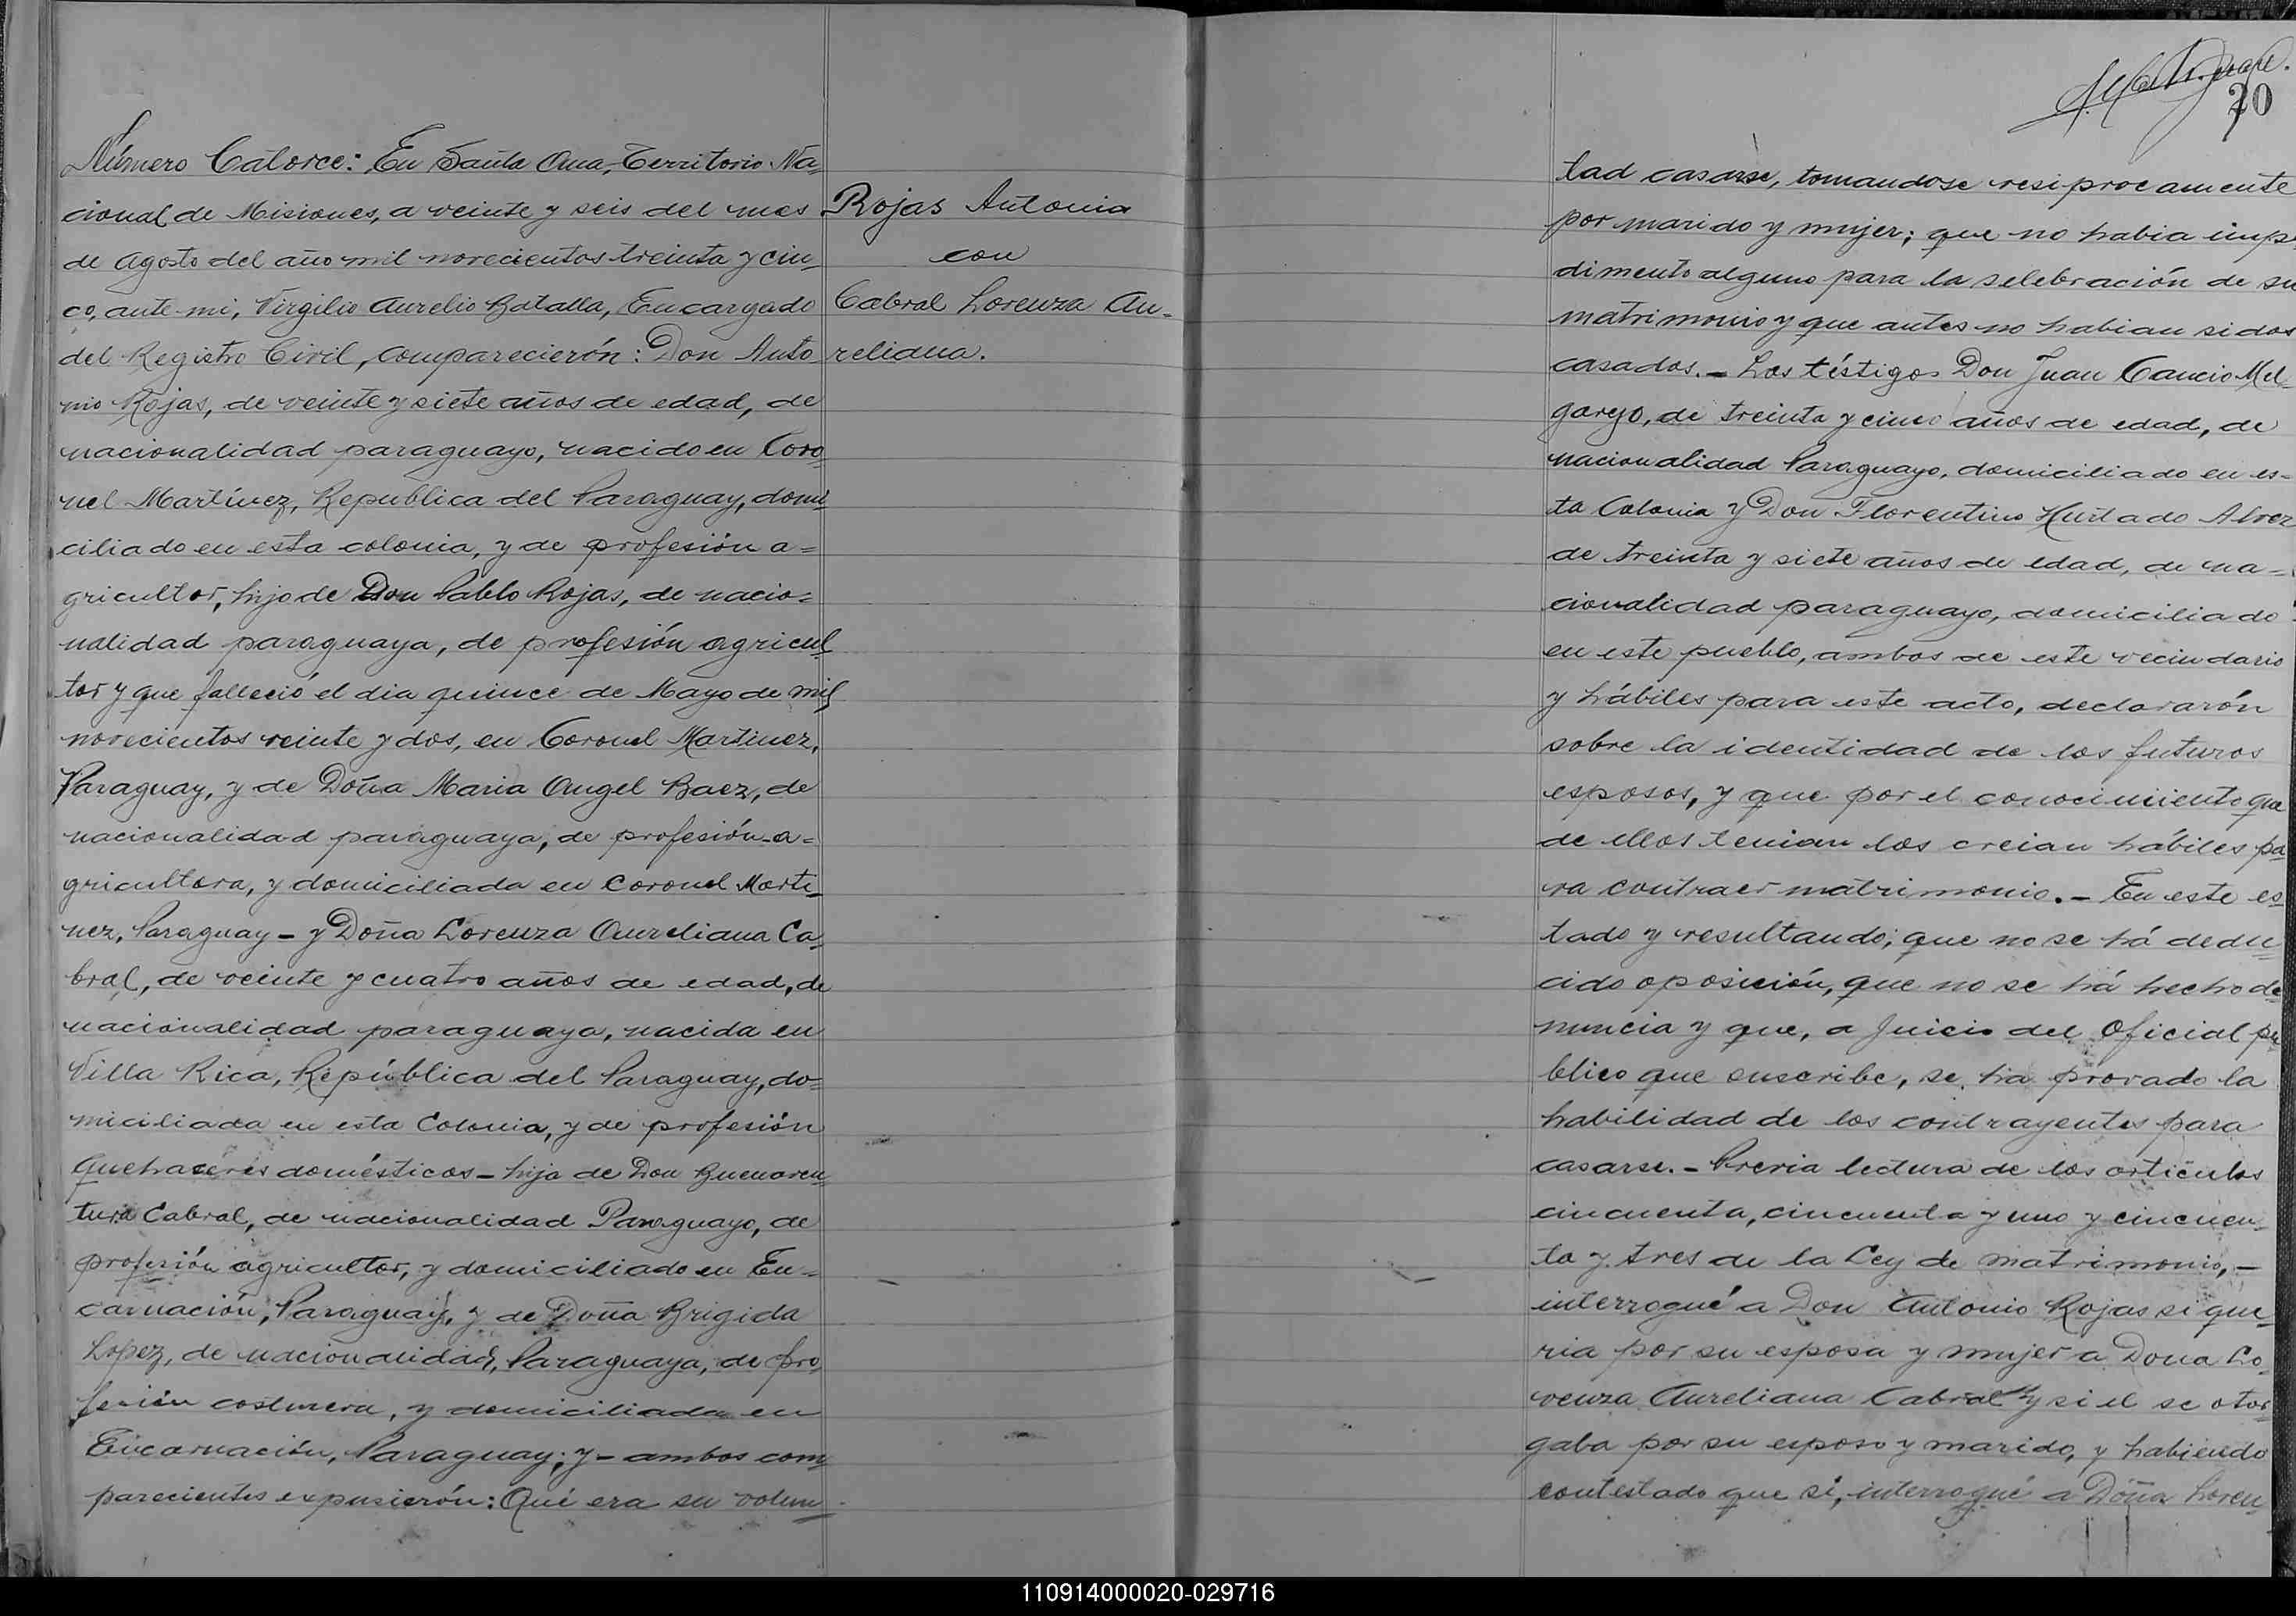 Número Catorce: En Santa Ana, Territorio Na-
cional de Misiones, a veinte y seis del mes
de Agosto del año mil novecientos treinta y cin-
co, ante mi, Virgilio Aurelio Batalla, Encargado
del Registro Civil, comparecierón: Don Anto-
nio Rojas, de veinte y siete años de edad, de
nacionalidad paraguayo, nacido en Coro-
nel Martínez, Republica del Paraguay, domi-
ciliado en esta colonia, y de profesión a=
gricultor, hijo de Don Pablo Rojas, de nacio=
nalidad paraguaya, de profesión agricul-
tor y que falleció el dia quince de Mayo de mil
novecientos veinte y dos, en Coronel Martinez,
Paraguay, y de Doña Maria Angel Baez, de
nacionalidad paraguaya, de profesión a=
gricultora, y domiciliada en Coronel Marti-
nez, Paraguay - y Doña Lorenza Aureliana Ca-
bral, de veinte y cuatro años de edad, de
nacionalidad paraguaya, nacida en
Villa Rica, República del Paraguay, do=
miciliada en esta Colonia, y de profesión
quehaceres domésticos - hija de Don Buenaven-
tura Cabral, de nacionalidad Paraguayo, de
profesión agricultor, y domiciliado en En=
carnación, Paraguay, y de Doña Brigida
Lopez, de nacionalidad, Paraguaya, de pro-
fesión costurera, y domiciliada en
Encarnación, Paraguay; y - ambos com-
parecientes expusierón: Qué era su volun-
Rojas Antonio
con
Cabral Lorenza Au-
reliana.
70
tad casarse, tomandose resiprocamente
por marido y mujer; que no habia impe
dimento alguno para la selebración de su
matrimonio y que antes no habian sidos
casados. - Los téstigos Don Juan Cancio Mel-
garejo, de treinta y cinco años de edad, de
nacionalidad Paraguayo, domiciliado en es-
ta Colonia y Don Florentino Hurtado
de treinta y siete años de edad, de na=
cionalidad paraguayo, domiciliado
en este pueblo, ambos de este vecindario
y hábiles para este acto, declararón
sobre la identidad de los futuros
esposos, y que por el conocimiento que
de ellos tenian los creian hábiles pa-
ra contraer matrimonio. - En este es-
tado y resultando; que no se há dedu-
cido oposición, que no se há hecho de-
nuncia y que, a juicio del Oficial pú-
blico que suscribe, se ha provado la
habilidad de los contrayentes para
casarse. - Previa lectura de los articulos
cincuenta, cincuenta y uno y cincuen-
ta y tres de la Ley de matrimonio, -
interrogué a Don Antonio Rojas si que-
ria por su esposa y mujer a Dona Lo-
renza Aureliana Cabral y si el se otor-
gaba por su esposo y marido, y habiendo
contestado que si, interrogué a Doña Loren-
110914000020-029716